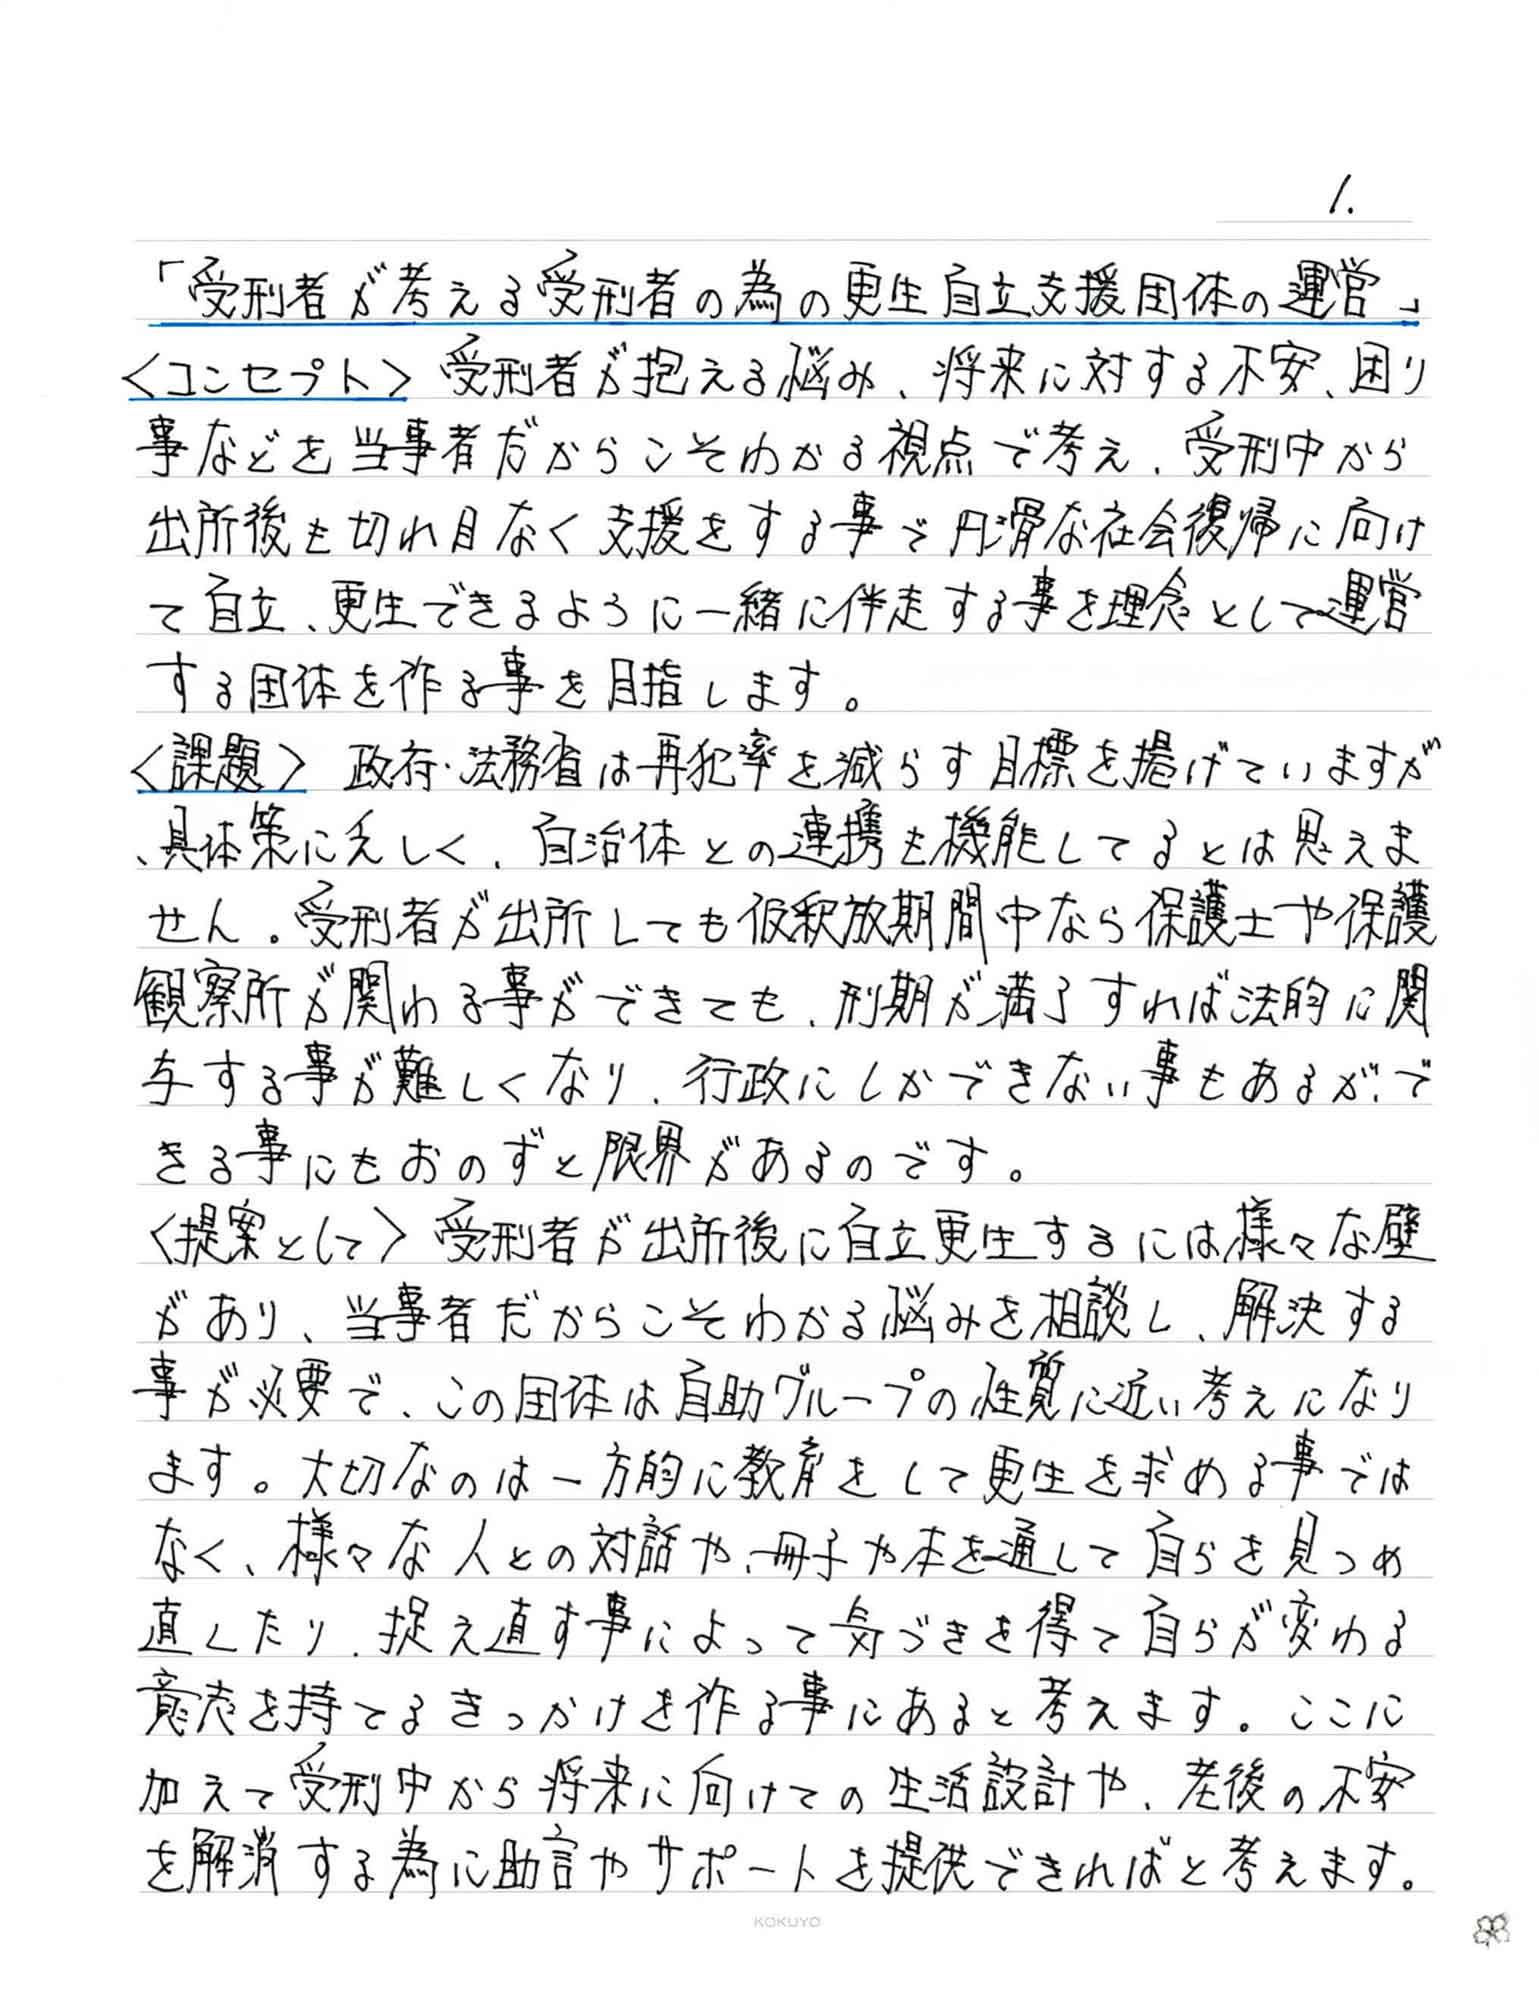 1.
「受刑者が考える受刑者の為の更生自立支援団体の運営」
〈コンセプト〉 受刑者が抱える悩み、将来に対する不安、困り
事などを当事者だからこそわかる視点で考え、受刑中から
出所後も切れ目なく支援をする事で円滑な社会復帰に向け
て自立、更生できるように一緒に伴走する事を理念として運営
する団体を作る事を目指します。
〈課題〉 政府・法務省は再犯率を減らす目標を掲げていますが
、具体策に乏しく、自治体との連携も機能してるとは思えま
せん。受刑者が出所しても仮釈放期間中なら保護士や保護
観察所が関わる事ができても、刑期が満了すれば法的に関
与する事が難しくなり、行政にしかできない事もあるが、で
きる事にもおのずと限界があるのです。
〈提案として〉 受刑者が出所後に自立更生するには様々な壁
があり、当事者だからこそわかる悩みを相談し、解決する
事が必要で、この団体は自助グループの性質に近い考えになり
ます。大切なのは一方的に教育をして更生を求める事では
なく、様々な人との対話や、冊子や本を通して自らを見つめ
直したり、捉え直す事によって気づきを得て自らが変わる
意志を持てるきっかけを作る事にあると考えます。ここに
加えて受刑中から将来に向けての生活設計や、老後の不安
を解消する為に助言やサポートを提供できればと考えます。
KOKUYO